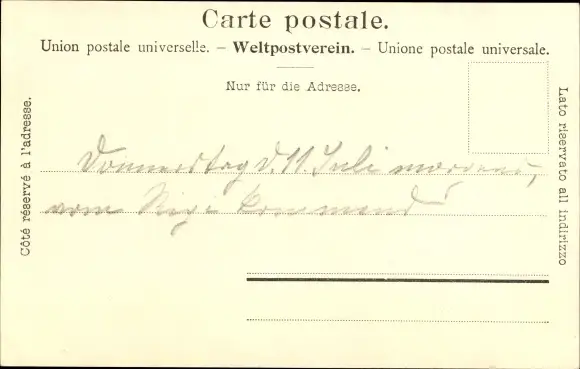 Carte postale.
Union postale universelle. – Weltpostverein. – Unione postale universale.
Nur für die Adresse.
Côté réservé à l'adresse.
Lato riservato all indirizzo
Donnerstag d. 11. Juli morgens,
vom Rigi kommend